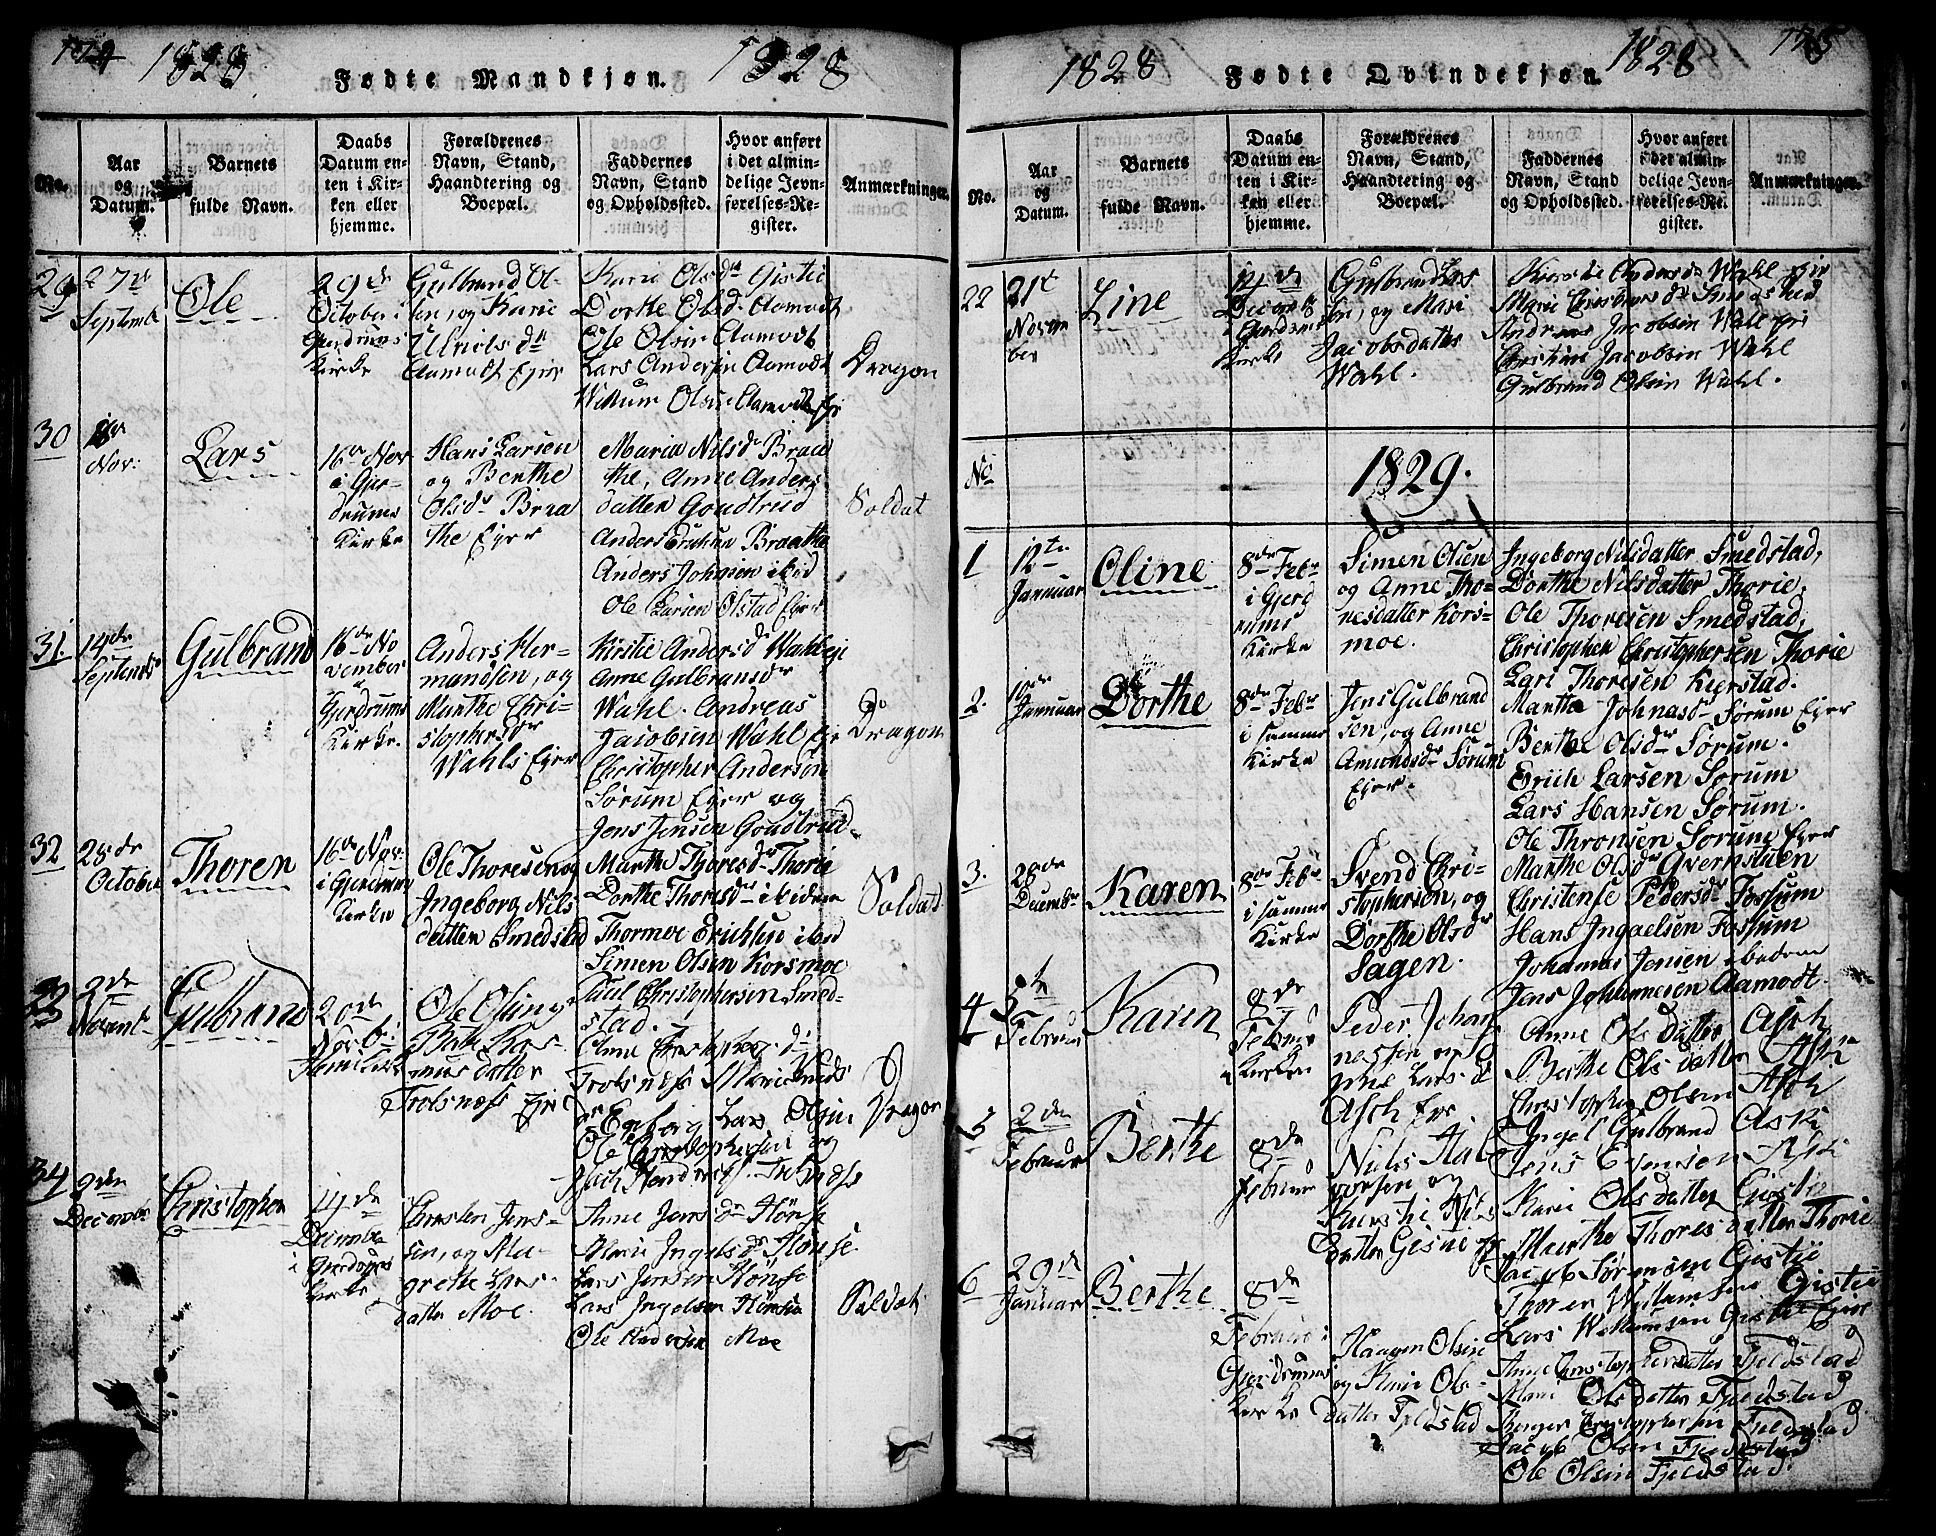 174 1828 Fødte Mandkjøn. 1828
No.
Aar og Datum.
Barnets fulde Navn.
Daabs Datum enten i Kirken eller hjemme.
Forældrenes Navn, Stand, Haandtering og Boepæl.
Faddernes Navn, Stand og Opholdssted.
Hvor anført i det almindelige Jevnførelses-Register.
Anmærkninger.
29
27de
Septembr
Ole
29de
October i
Gjerdrums
Kirke
Gulbrand Ol-
sen, og Karie
Aamodt Ejer
Karie Olsdtr Gistie
Dorthe Olsd. Aamodt
Ole Olsen Aamodt
Lars Andersen Aamodt
Willum Olsen Aamodt
Dragon
30
Nov:
Lars
16de Nov
i Gjer-
drums
Kirke
Hans Larsen
og Berthe
Olsdr Braa
the Ejer
Maria Nilsdr Braa
the, Anne Anders
datter Goudtrud
Anders Erichsen Braathe
Anders Johnsen ibid
Ole Larsen Olstad Ejer
Soldat
31.
14de
Septembr
Gulbrand
16de No
vember
Gjerdrums
Kirke.
Anders Her-
mandsen, og
Marthe Chri-
stophersdr
Wahls Ejer
Kirstie Andersd Wahl
Anne Gulbransdr
Wahl. Andreas
Jacobsen Wahl
Christopher Andersen
Sørum Ejer og
Jens Jensen Goudtrud
Dragon
32
28de
October
Thoren
16de Nov:
i Gjerdrums
Kirke
Ole Thoresen og
Ingeborg Nils
datter Smedstad
Marthe Thoresdr Thorie
Dorthe Thorsdr ibidem
Thormoe Erichsen ibid
Simen Olsen Korsmoe
Paul Christophersen Smed-
stad.
Soldat
33
2de
Novemb
Gulbrand
Ole Olsen
datter
Trolsnæss Ejer
Lars Olsen
Ole Christophersen og
Dragon
34
2den
December
Christopher
14de
Decembr
i Gjerdrums
Kirke
Christen Jens-
sen, og Mar-
grethe Lars-
datter Moe.
Anne Jensdr Hønsie
Marie Ingelsdr Hønsie.
Lars Jensen Hønsie
Lars Ingelsen Hønsie
Ole Andersen Moe
Soldat
1828 Fødte Qvindekjøn. 1828 175
No.
Aar og Datum.
Barnets fulde Navn.
Daabs Datum enten i Kirken eller hjemme.
Forældrenes Navn, Stand, Haandtering og Boepæl.
Faddernes Navn, Stand og Opholdssted.
Hvor anført i det almindelige Jevnførelses-Register.
Anmærkninger.
22
21de
Novem
ber
Line
14de
Decembr
i Gjerdrums
Kirke
Gulbrand Lars
sen, og Mari
Jacobsdatter
Wahl.
Kirstie Andersdr Wahl
Andreas Jacobsen Wahl Ejer
Christian Jacobsen Wahl
Gulbrand Olsen Wahl.
No
1829.
1
12te
Januar
Oline
8de Febr
i Gjerd
rums
Kirke
Simen Olsen
og Anne Tho-
resdatter Kors-
moe.
Ingeborg Nilsdatter Smedstad,
Dorthe Nilsdatter Thorie,
Ole Thoresen Smedstad,
Christopher Christophersen Thorie
Lars Thoresen Kierstad.
2.
Januar
Dorthe
8de Febr
i samme
Kirke
Jens Gulbrand
sen, og Anne
Amundsdr Sørum
Ejer.
Marthe Johnasdr Sørum Ejer
Berthe Olsdr Sørum.
Erich Larsen Sørum
Lars Hansen Sørum.
Ole Thronsen Sørum Ejer
3.
28de
Decembr
Karen
8de Febr
i samme
Kirke
Svend Chri-
stophersen, og
Dorthe Olsdr
Sagen.
Marthe Olsdr Qvernstuen
Christense Pedersdr Fossum
Hans Ingaelsen Fossum
Johannes Jensen ibidem
Jens Johannesen Aamodt.
4
5te
Februar
Karen
8de
Februar
Kirken
Peder Johan
nessen og So
phie Larsd
Asch Ejer
Anne Olsdatter Asch
Berthe Olsdatter Asch
Christopher Olsen Asch
Ingel Gulbrand Ask
Jens Evensen Ask
5
2den
Februar
Berthe
8de
Februar
Niels Hal
vorsen og
Kirstie Nils
datter Gistie
Kari Olsdatter Gistie
Marthe Thoresdatter Thorie
Jacob Sørensen Gistie
Thoren Willumsen Gistie
Lars Willumsen Gistie Ejere
6
29de
Januar
Berthe
8de
Februar i
Gjerdrums
Kirke
Haagen Olsen
og Karie Ols-
datter Fjeldstad
Anne Christophersdatter Fjeldstad
Kari Olsdatter Fjeldstad
Torger Christophersen Fjeldstad
Jacob Olsen Fjeldstad
Ole Olsen Fjeldstad.